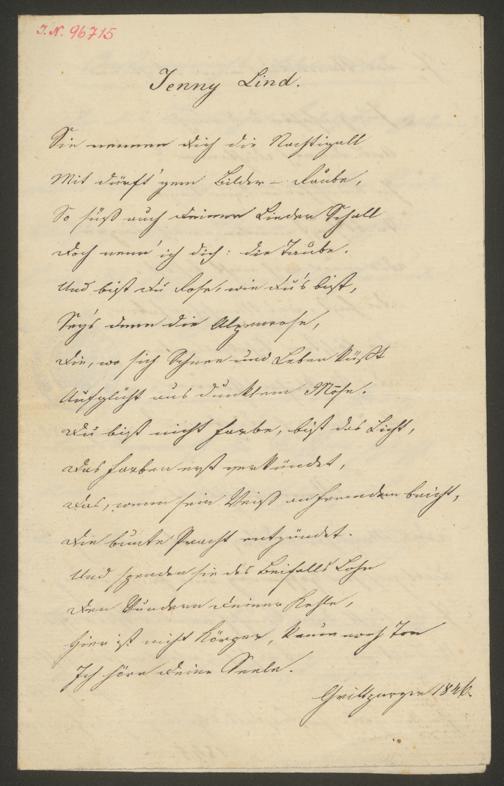 I. N. 96715
Jenny Lind.
Sie nennen dich die Nachtigall
Mit dürft'gem Bilder-Raube,
So süß auch deiner Lieder Schall
Doch nenn' ich dich: die Taube.
Und bist du Rose, wie du's bist,
Sey's denn die Alpenrose,
Die, wo sich Schnee und Leben küßt
Aufglüht aus dunklem Mose.
Du bist nicht Farbe, bist das Licht,
Das Farben erst verkündet,
Das, wenn sein Weiß an Fremdem bricht,
Die bunte Pracht entzündet.
Und spenden sie des Beifalls Lohn
Den Wundern deiner Kehle,
Hier ist nicht Körper, kaum noch Ton
Ich höre deine Seele.
Grillparzer 1846.